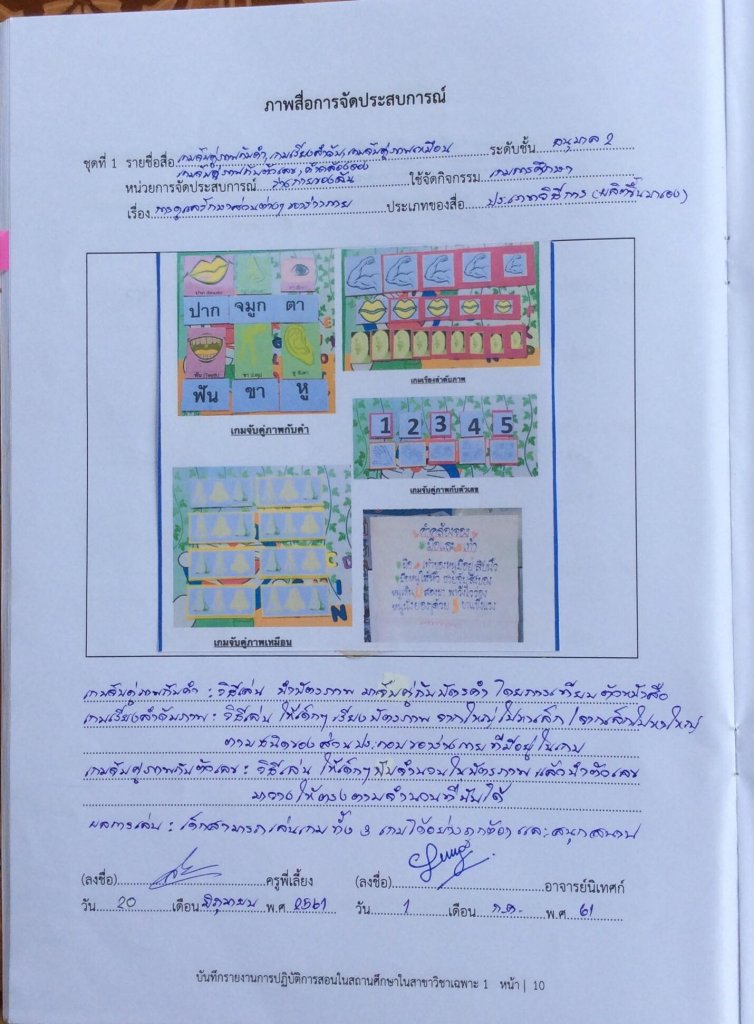 ภาพสื่อการจัดประสบการณ์
ชุดที่ 1 รายชื่อสื่อ เกมจับคู่ภาพกับคำ, เกมเรียงลำดับ, เกมจับคู่ภาพเหมือน ระดับชั้น อนุบาล 2
เกมจับคู่ภาพกับตัวเลข, คำคล้องจอง
หน่วยการจัดประสบการณ์ ร่างกายของฉัน ใช้จัดกิจกรรม เกมการศึกษา
เรื่อง การดูแลรักษาส่วนต่างๆ ของร่างกาย ประเภทของสื่อ ประเภทวิธีการ (ผลิตขึ้นมาเอง)
ปาก จมูก ตา
ฟัน (Teeth) ขา (Leg)
ฟัน ขา หู
เกมจับคู่ภาพกับคำ
เกมเรียงลำดับภาพ
1 2 3 4 5
เกมจับคู่ภาพกับตัวเลข
เกมจับคู่ภาพเหมือน
คำคล้องจอง
มือและเท้า
มือ เท้าของหนูมีอยู่สิบนิ้ว
หนูเดิน สองขา
เกมจับคู่ภาพกับคำ : วิธีเล่น นำบัตรภาพ มาจับคู่กับบัตรคำ โดยการเทียบตัวหนังสือ
เกมเรียงลำดับภาพ : วิธีเล่น ให้เด็กๆ เรียงบัตรภาพ จากใหญ่ไปหาเล็ก / จากเล็กไปหาใหญ่
ตามชนิดของส่วนประกอบของร่างกายที่มีอยู่ในเกม
เกมจับคู่ภาพกับตัวเลข : วิธีเล่น ให้เด็กๆ นับจำนวนในบัตรภาพ แล้วนำตัวเลข
มาวางให้ตรงตามจำนวนที่นับได้
ผลการเล่น : เด็กสามารถเล่นเกมทั้ง 3 เกมได้อย่างถูกต้อง และสนุกสนาน
(ลงชื่อ) ครูพี่เลี้ยง (ลงชื่อ) อาจารย์นิเทศก์
วัน 20 เดือน มิถุนายน พ.ศ 2561 วัน 1 เดือน ก.ค. พ.ศ 61
บันทึกรายงานการปฏิบัติการสอนในสถานศึกษาในสาขาวิชาเฉพาะ 1 หน้า | 10